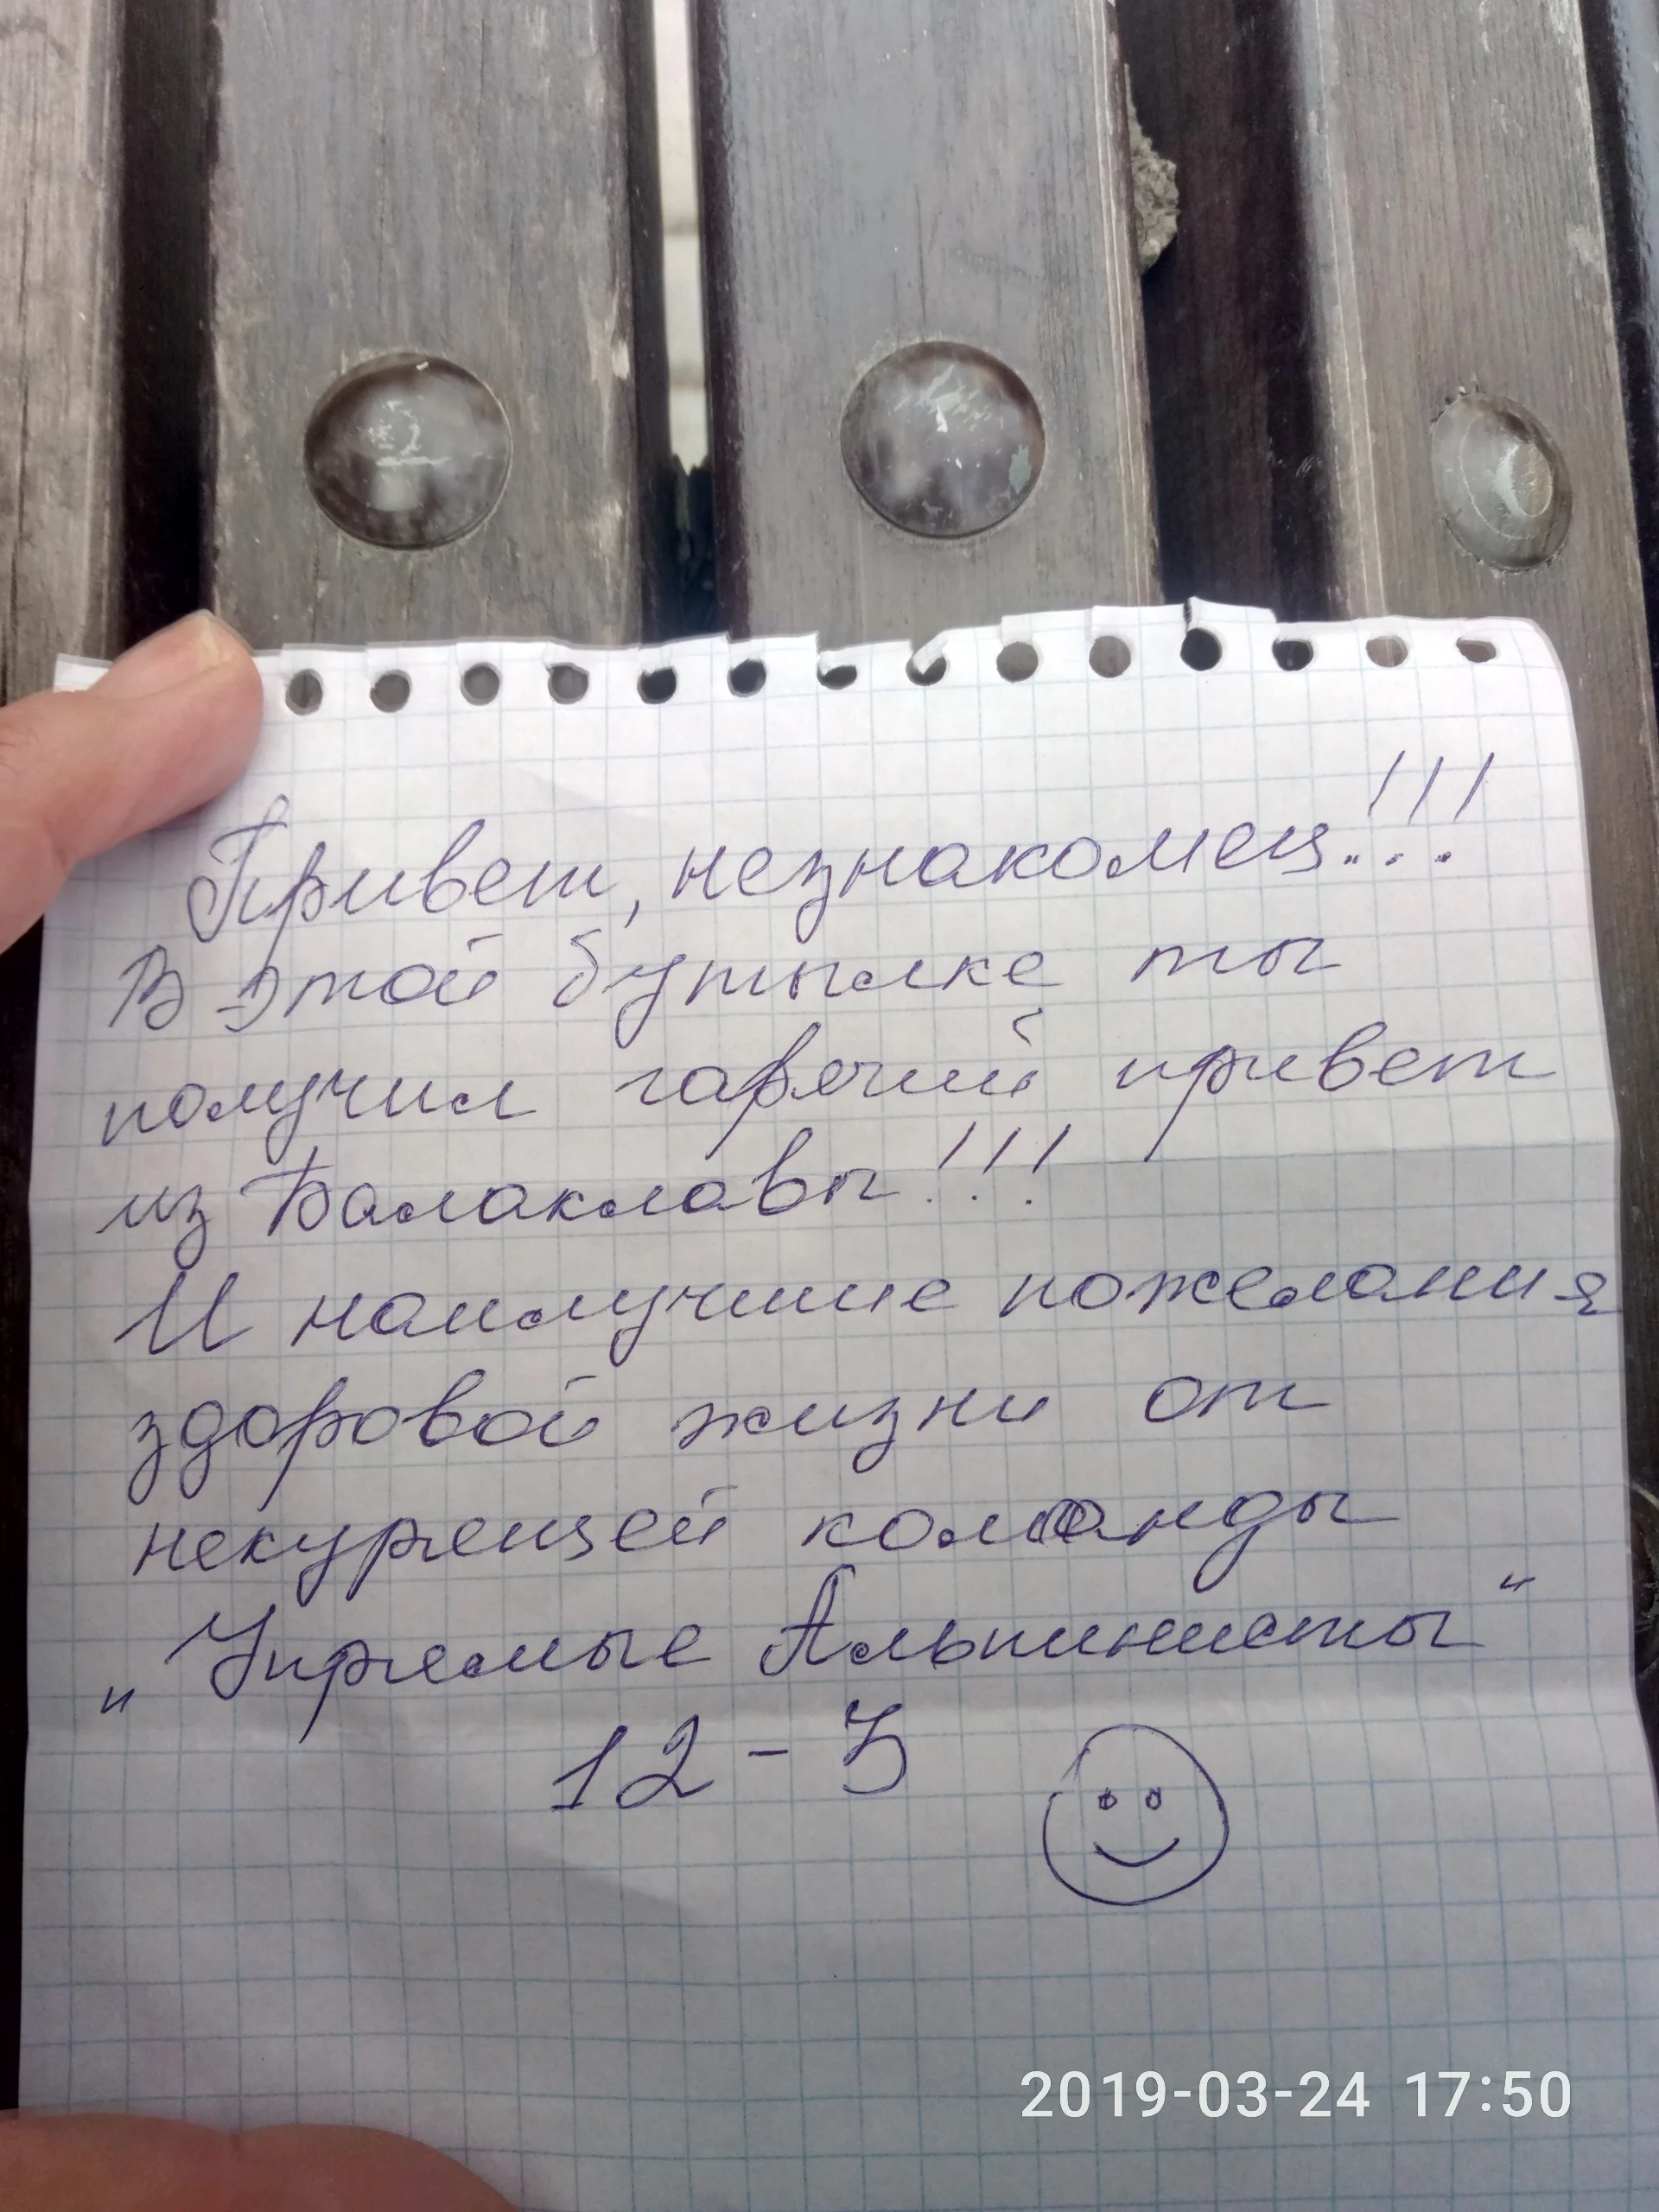 Привет, незнакомец!!!
В этой бутылке ты
получил гарячий привет
из Балаклавы!!!
И наилучшие пожелания
здоровой жизни от
некурящей команды
„Упрямые Альпинисты“
12-З
2019-03-24 17:50